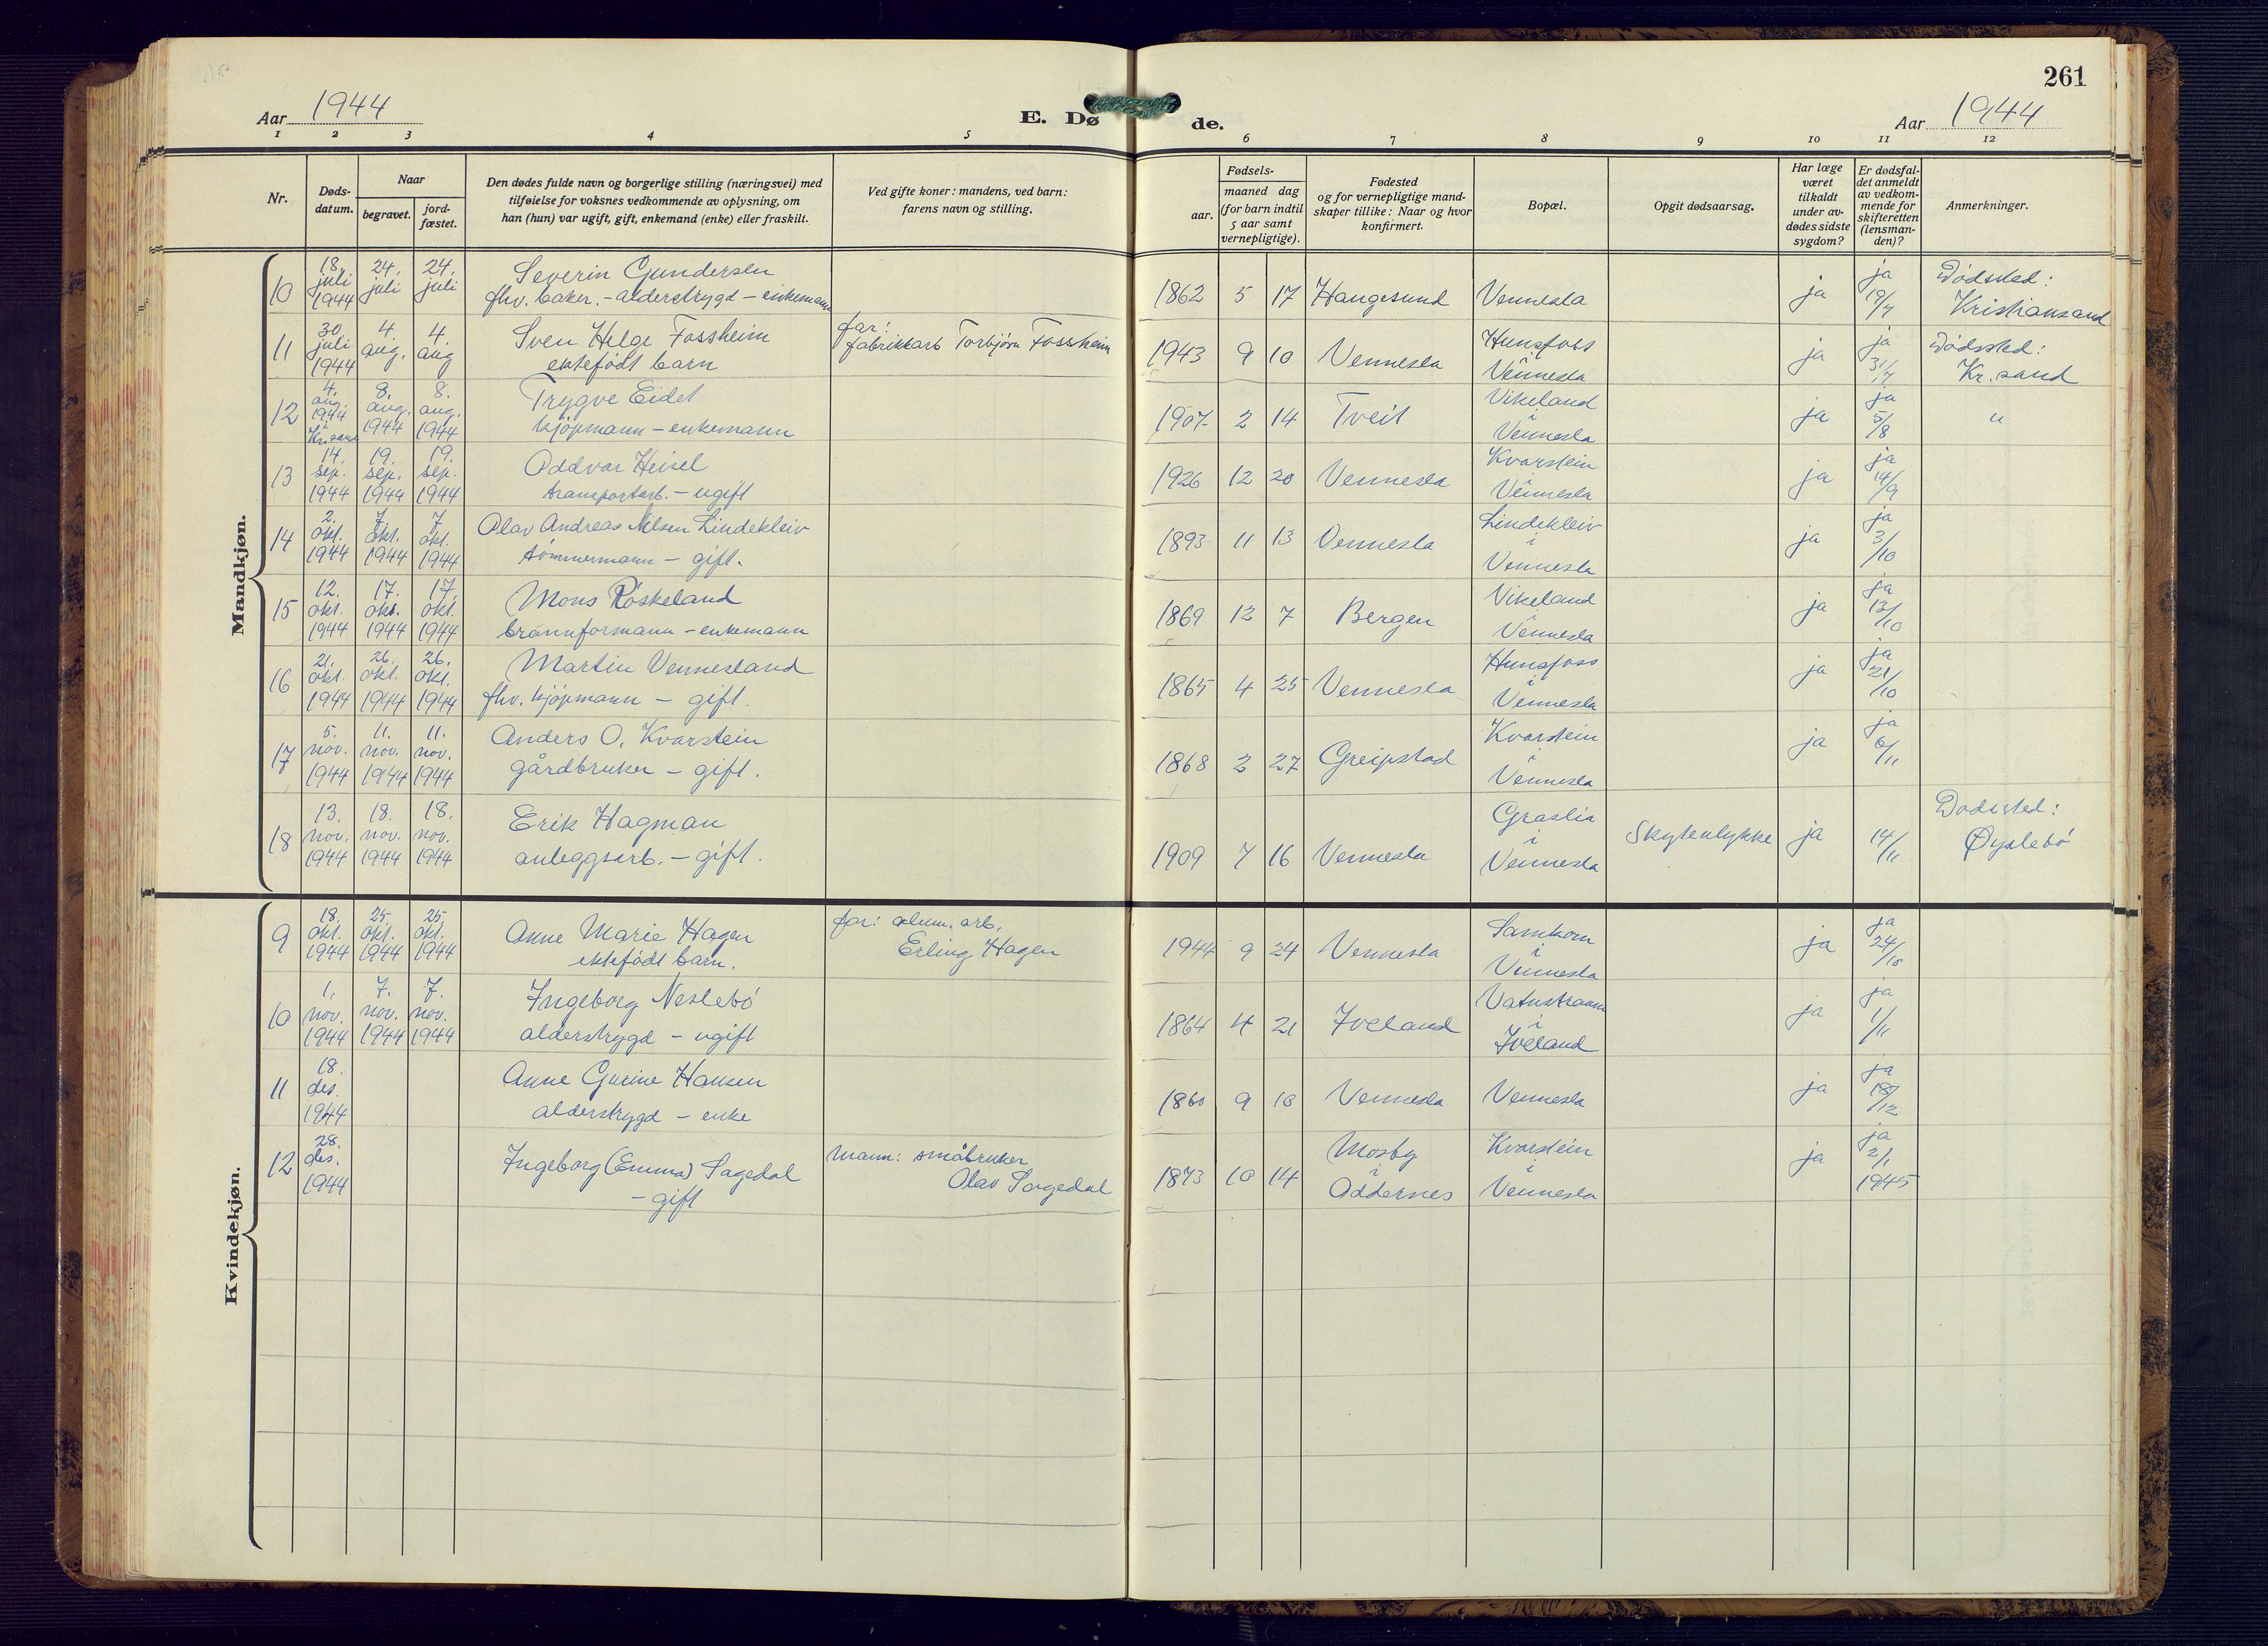 261
Aar 1944
E. Dø de.
Aar 1944
1 2 3 4 5 6 7 8 9 10 11 12
Nr.
Døds-
datum.
Naar
begravet.
jord-
fæstet.
Den dødes fulde navn og borgerlige stilling (næringsvei) med
tilføielse for voksnes vedkommende av oplysning, om
han (hun) var ugift, gift, enkemand (enke) eller fraskilt.
Ved gifte koner: mandens, ved barn:
farens navn og stilling.
Fødsels-
aar.
maaned dag
(for barn indtil
5 aar samt
vernepligtige).
Fødested
og for vernepligtige mand-
skaper tillike: Naar og hvor
konfirmert.
Bopæl.
Opgit dødsaarsag.
Har læge
været
tilkaldt
under av-
dødes sidste
sygdom?
Er dødsfal-
det anmeldt
av vedkom-
mende for
skifteretten
(lensman-
den)?
Anmerkninger.
Mandkjøn.
10
18.
juli
1944
24.
juli
24.
juli
Severin Gundersen
fhv. baker. - alderstrygd - enkemann
1862 5 17 Haugesund Vennesla
ja
ja
19/7
Dødssted:
Kristiansand
11
30.
juli
1944
4.
aug.
4.
aug
Sven Helge Fossheim
ektefødt barn
far:
fabrikkarb Torbjørn Fossheim
1943 9 10 Vennesla
Hunsfoss
i
Vennesla
ja
ja
31/7
Dødssted:
Kr. sand
12
4.
aug.
1944
i
Kr.sand
8.
aug.
1944
8.
aug.
1944
Trygve Eidet
kjøpmann - enkemann
1907 2 14 Tveit
Vikeland
i
Vennesla
ja
ja
5/8
"
13
14.
sep.
1944
19.
sep.
1944
19.
sep.
1944
Oddvar Heisel
transportarb. - ugift
1926 12 20 Vennesla
Kvarstein
i
Vennesla
ja
ja
14/9
14
2.
okt.
1944
7.
okt.
1944
7.
okt.
1944
Olav Andreas Nilsen Lindekleiv
tømmermann - gift.
1893 11 13 Vennesla
Lindekleiv
i
Vennesla
ja
ja
3/10
15
12.
okt.
1944
17.
okt.
1944
17.
okt.
1944
Mons Røskeland
brannformann - enkemann
1869 12 7 Bergen
Vikeland
i
Vennesla
ja
ja
13/10
16
21.
okt.
1944
26.
okt.
1944
26.
okt.
1944
Martin Vennesland
fhv. kjøpmann - gift.
1865 4 25 Vennesla
Hunsfoss
i
Vennesla
ja
ja
21/10
17
5.
nov.
1944
11.
nov.
1944
11.
nov.
1944
Anders O. Kvarstein
gårdbruker - gift.
1868 2 27 Greipstad
Kvarstein
i
Vennesla
ja
ja
6/11
18
13.
nov.
1944
18.
nov.
1944
18.
nov.
1944
Erik Hagman
anleggsarb. - gift.
1909 7 16 Vennesla
Graslia
i
Vennesla
Skyteulykke
ja
14/11
Dødssted:
Øyslebø
Kvindekjøn.
9
18.
okt.
1944
25.
okt.
1944
25.
okt.
1944
Anne Marie Hagen
ektefødt barn.
far: alum. arb.
Erling Hagen
1944 9 24 Vennesla
Samkom
i
Vennesla
ja
ja
24/10
10
1.
nov.
1944
7.
nov.
1944
7.
nov.
1944
Ingeborg Neslebø
alderstrygd - ugift
1864 4 21 Iveland
Vatnstraum
i
Iveland
ja
ja
1/11
11
18.
des.
1944
Anne Gurine Hansen
alderstrygd - enke
1860 9 18 Vennesla Vennesla
ja
ja
18/12
12
28.
des.
1944
Ingeborg (Emma) Sagedal
- gift
Mann: småbruker
Olav Sagedal
1873 10 14
Mosby
i
Oddernes
Kvarstein
i
Vennesla
ja
ja
2/1
1945